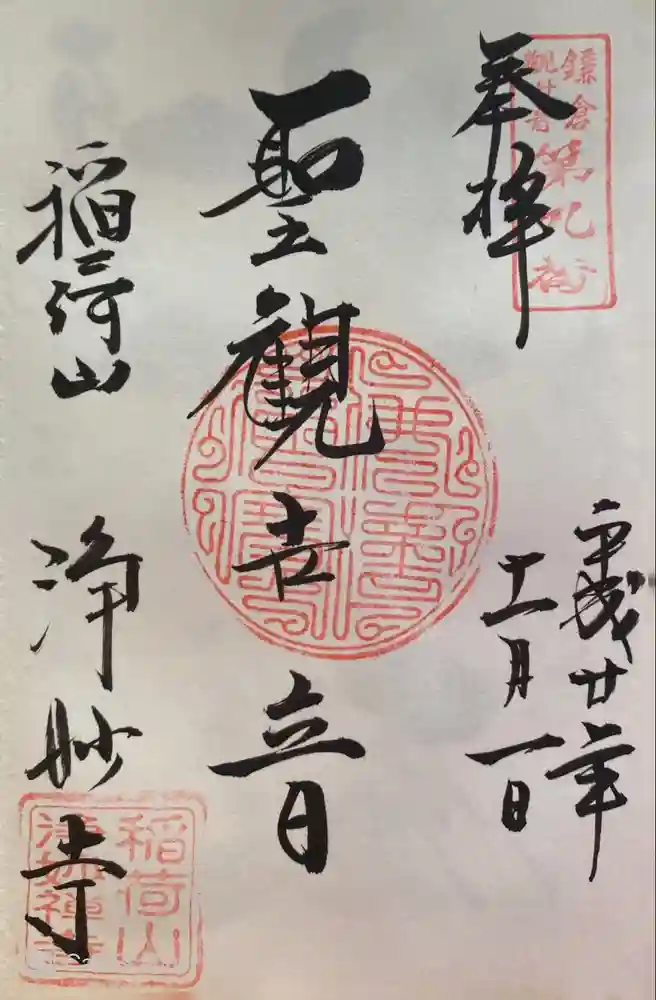 鎌倉
観世音
第九
奉拝
平成廿年
十一月一日
聖観世音
稲荷山
浄妙寺
稲荷山
浄妙禅寺